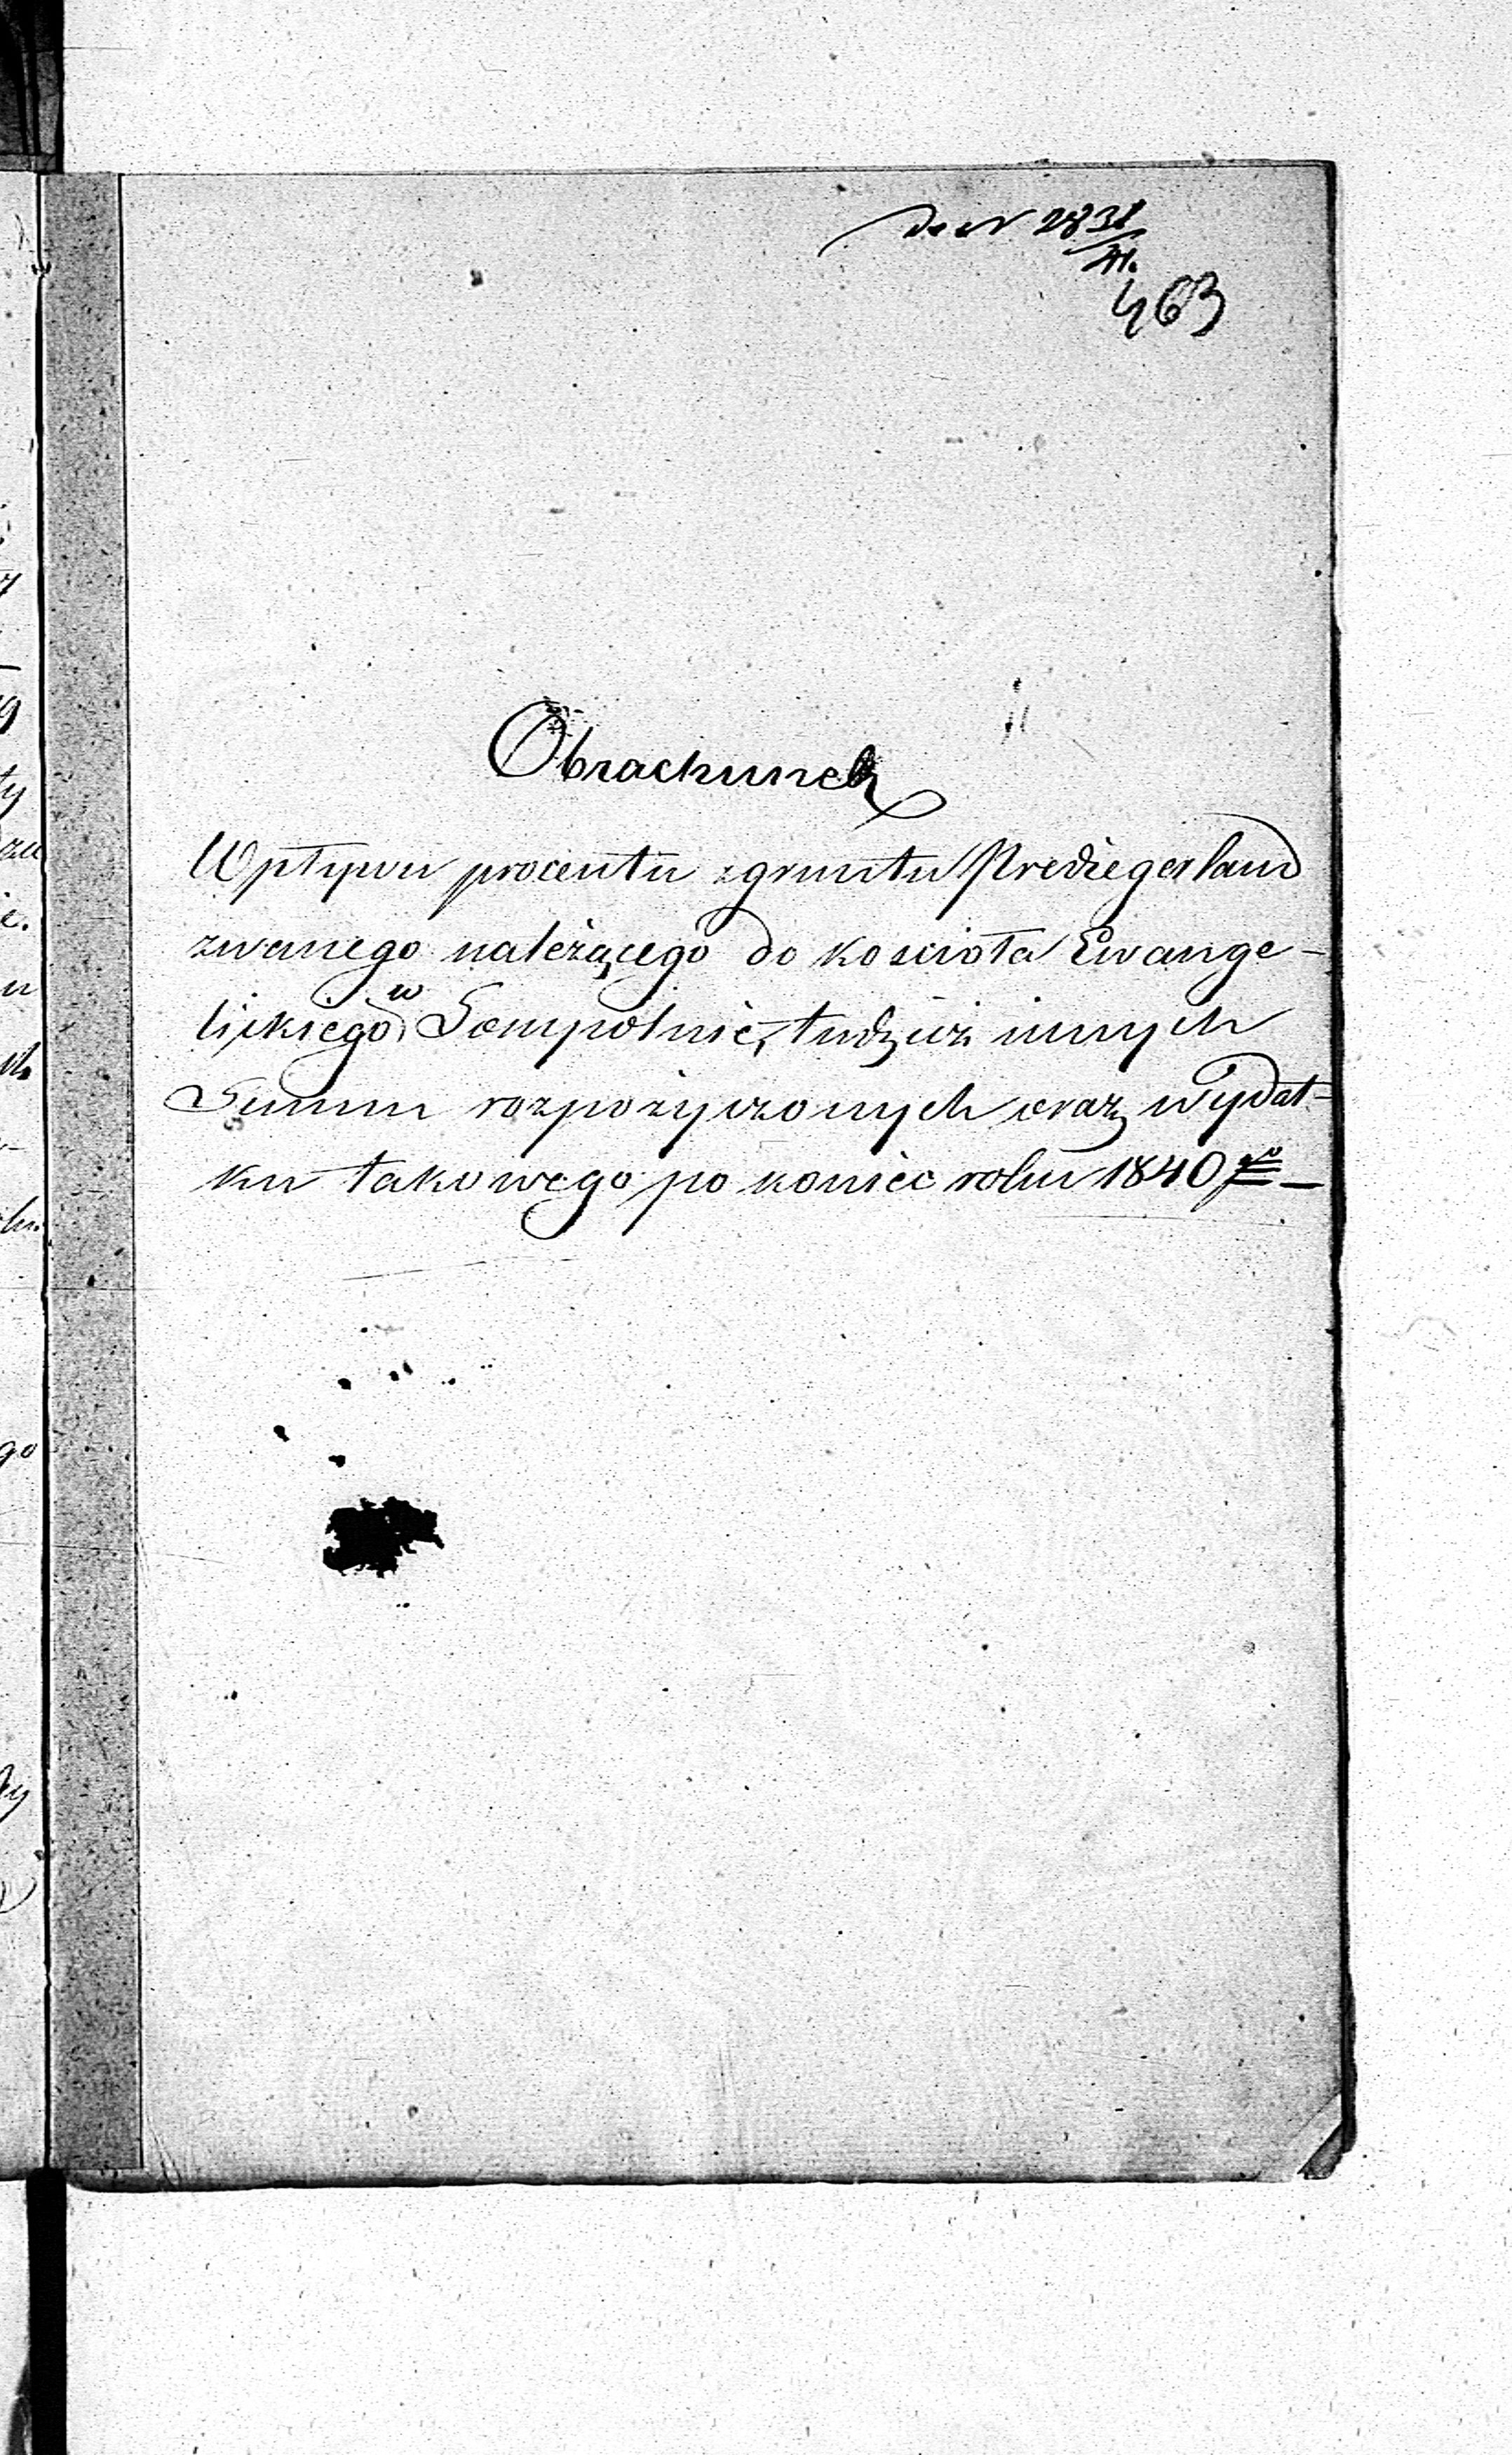 2838
41.
463
Obrachunek
Wpływu procentu z gruntu Predigerland
zwanego należącego do kościoła Ewange-
lickiego w Sempolnie, tudzież innych
Summ rozpożyczonych oraz wydat-
ku takowego po koniec roku 1840 go